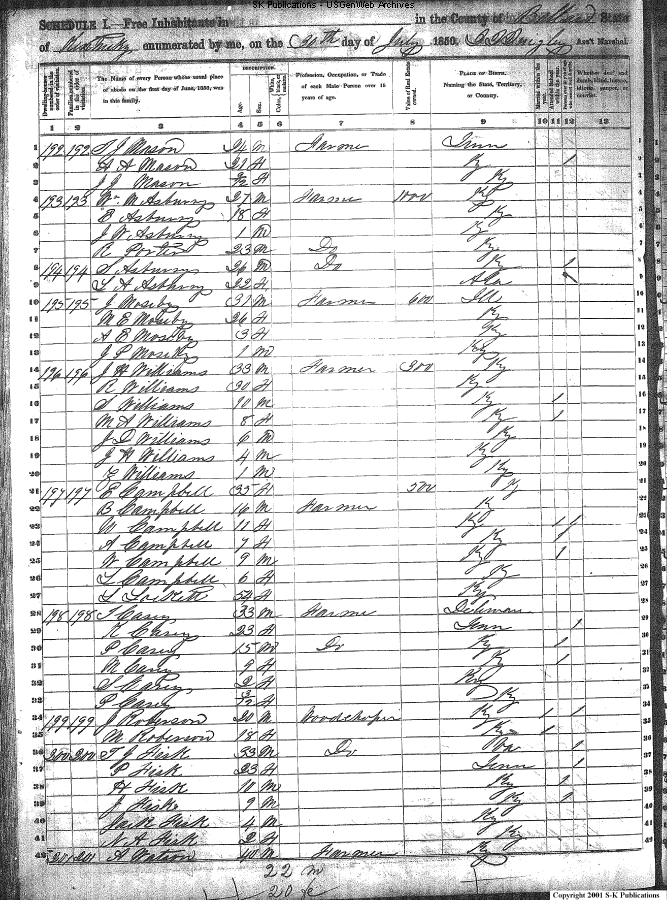 SK Publications - USGenWeb Archives
SCHEDULE I.—Free Inhabitants in in the County of Ballard State
of Kentucky enumerated by me, on the 20th day of July 1850. Ass't Marshal.
Dwelling-houses numbered in the order of visitation. Families numbered in the order of visitation. The Name of every Person whose usual place of abode on the first day of June, 1850, was in this family. DESCRIPTION. Age. Sex. Color, White, black, or mulatto. Profession, Occupation, or Trade of each Male Person over 15 years of age. Value of Real Estate owned. PLACE OF BIRTH. Naming the State, Territory, or Country. Married within the year. Attended School within the year. Whether deaf and dumb, blind, insane, idiotic, pauper, or convict.
1 2 3 4 5 6 7 8 9 10 11 12 13
1 192 192 S J Mason 24 M Farmer Tenn
2 H A Mason 21 F Ky 1
3 J J Mason /12 F Ky
4 193 193 Wm M Asbury 27 M Farmer 1000 Ky
5 E Asbury 18 F Ky
6 J W Asbury 1 M Ky
7 R Porter 23 M Do Ky
8 194 194 S Asbury 26 M Do Ky 1
9 L A Asbury 22 F Ala
10 195 195 J Moseby 37 M Farmer 600 Ill
11 M E Moseby 26 F Ky
12 A E Moseby 3 F Ky
13 J P Moseby 1 M Ky
14 196 196 J H Williams 33 M Farmer 300 Ky
15 R Williams 30 F Ky
16 S Williams 10 M Ky 1
17 M A Williams 8 F Ky 1
18 J D Williams 6 M Ky
19 J W Williams 4 M Ky
20 E Williams 1 M Ky
21 197 197 E Campbell 35 F 500 Ky
22 B Campbell 16 M Farmer Ky
23 W Campbell 11 F Ky 1 1
24 A Campbell 7 F Ky 1
25 W Campbell 9 M Ky 1
26 L Campbell 6 F Ky
27 L 54 F Ky
28 198 198 T Casey 33 M Farmer Deliman
29 K Casey 23 F Tenn 1
30 P Casey 15 M Do Ky 1
31 M Casey 9 F Ky 1
32 S Casey 2 F Ky
33 P Casey 3/12 F Ky
34 199 199 J Roberson 20 M Woodchoper Ky 1 1
35 M Roberson 18 F Ky 1
36 200 200 T J Fisk 53 M Do Va 1
37 P Fisk 23 F Tenn 1
38 H Fisk 10 M Ky 1
39 J Fisk 9 M Ky 1
40 Jack Fisk 4 M Ky
41 N A Fisk 2 F Ky
42 201 201 A Watson 40 M Farmer Ky
22 m
20 fe
Copyright 2001 S-K Publications